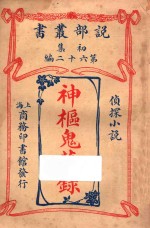 說部叢書
初集
第六十二編
偵探小說
神樞鬼錄
上海商務印書館發行